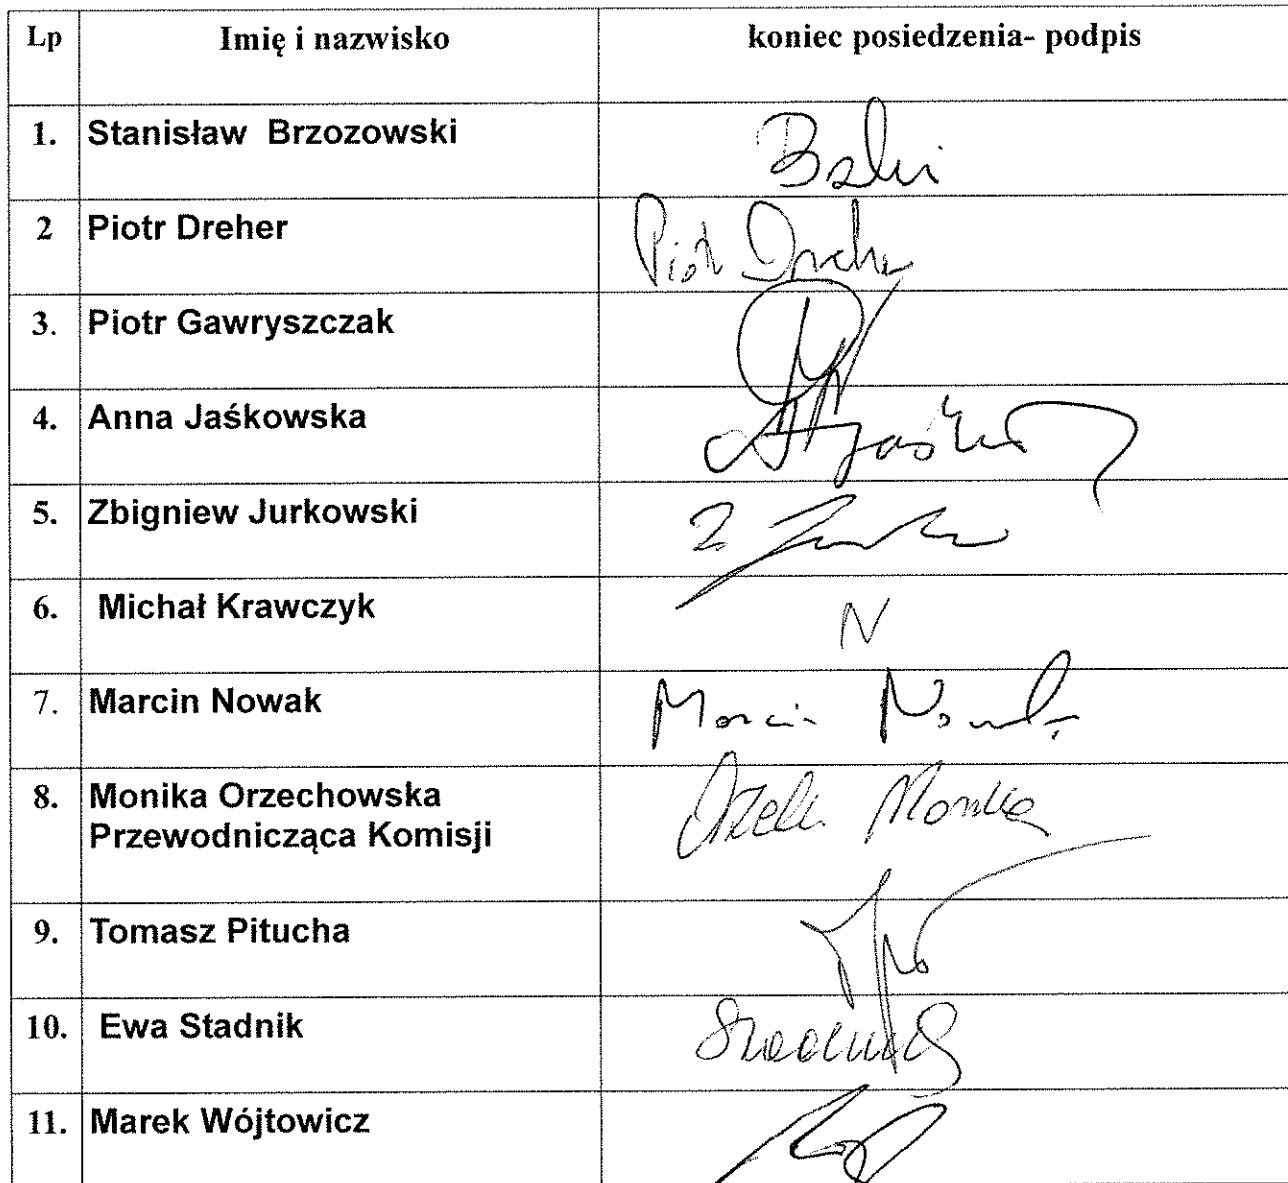 Lp Imię i nazwisko koniec posiedzenia- podpis
1. Stanisław Brzozowski
2 Piotr Dreher Piotr Dreher
3. Piotr Gawryszczak
4. Anna Jaśkowska
5. Zbigniew Jurkowski
6. Michał Krawczyk N
7. Marcin Nowak Marcin Nowak
8. Monika Orzechowska
Przewodnicząca Komisji
9. Tomasz Pitucha
10. Ewa Stadnik
11. Marek Wójtowicz